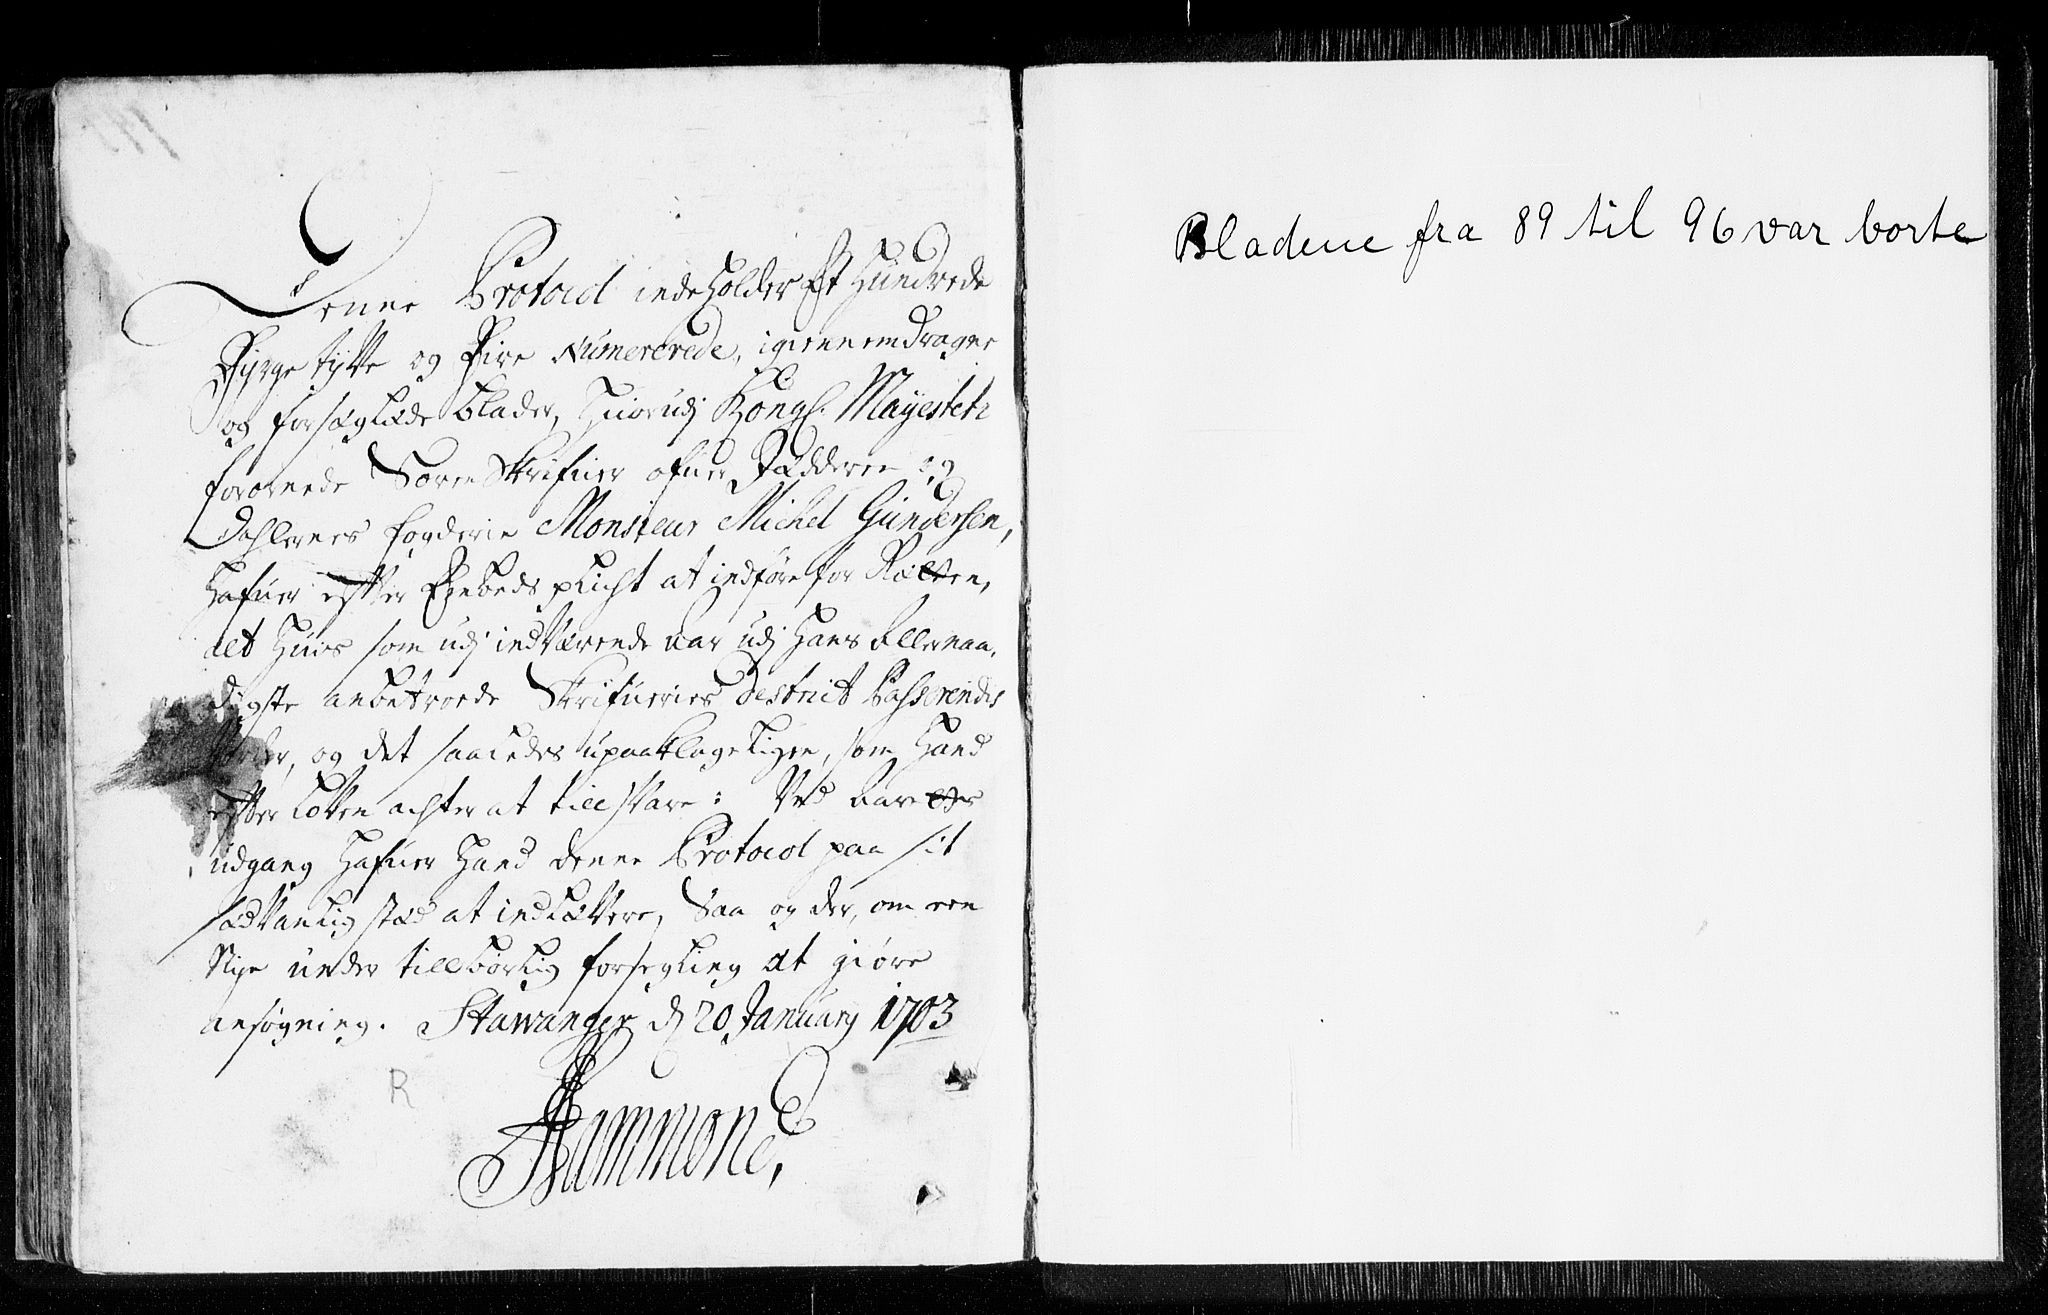 Denne Protocol indeholder Et Hundrede
Fyrgetÿtte og Fire Numererede, igiennemdragne
og forseglede blader, Huorudj Kongl. Mayestetz
forornede SorenSkrifuer ofuer Jædderen og
Dahlernes fogderie Monsieur Michel Gundersen,
Hafuer efter Embeds plicht at indføre for Rætten,
alt Huis som udj indVærende aar udj Hans Allernaa,
digste anbetroede Skrifueries destrict Passerendis
Vorder, og det saaledes upaaklageligen, som Hand
efter Loven achter at till svare: Ved Aaretts
udgang Hafuer Hand denne Protocol paa sit
sædvanlig stæd at indlevere, Saa og der, om een
Nye under tillbørlig forsegling at giøre
ansøgning. Stawanger dj 20 January 1703
R
Hammond,
Bladene fra 89 til 96 var borte